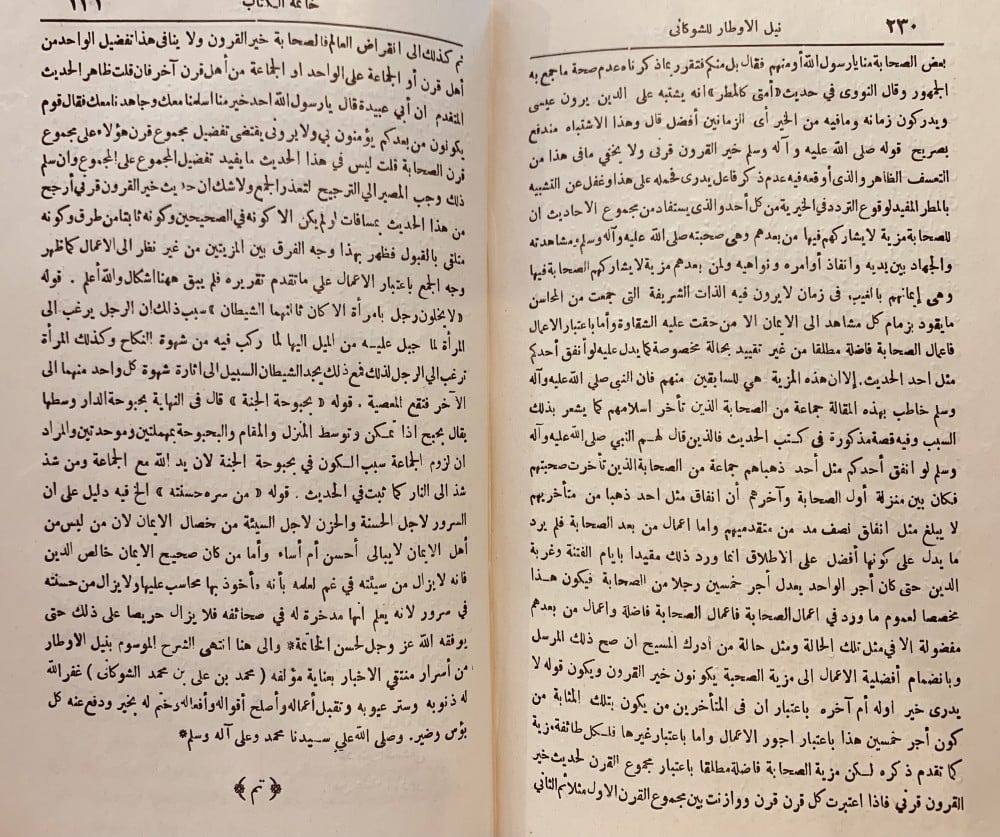 ٢٣٠ نيل الاوطار للشوكانى
بعض الصحابة منا يارسول الله أو منهم فقال بل منكم فتقرر بماذكرناه عدم صحة ماجمع به
الجمهور وقال النووى فى حديث «أمتى كالمطر» انه يشتبه على الذين يرون عيسى
ويدركون زمانه ومافيه من الخير أى الزمانين أفضل قال وهذا الاشتباه مندفع
بصريح قوله صلى الله عليه وآله وسلم خير القرون قرنى ولا يخفي مافى هذا من
التعسف الظاهر والذى أوقعه فيه عدم ذكر فاعل يدرى فحمله على هذا وغفل عن التشبيه
بالمطر المفيد لوقوع التردد فى الخيرية من كل أحد والذى يستفاد من مجموع الاحاديث ان
للصحابة مزية لا يشاركهم فيها من بعدهم وهى صحبته صلى الله عليه وآله وسلم ومشاهدته
والجهاد بين يديه وانفاذ أوامره ونواهيه ولمن بعدهم مزية لا يشاركهم الصحابة فيها
وهى إيمانهم بالغيب فى زمان لا يرون فيه الذات الشريفة التى جمعت من المحاسن
مايقود بزمام كل مشاهد الى الايمان الا من حقت عليه الشقاوة وأما باعتبار الاعمال
فاعمال الصحابة فاضلة مطلقا من غير تقييد بحالة مخصوصة كما يدل عليه لو أنفق أحدكم
مثل احد الحديث. إلا ان هذه المزية هي للسابقين منهم فان النبي صلى الله عليه وآله
وسلم خاطب بهذه المقالة جماعة من الصحابة الذين تأخر اسلامهم كما يشعر بذلك
السبب وفيه قصة مذكورة فى كتب الحديث فالذين قال لهم النبي صلى الله عليه وآله
وسلم لو انفق أحدكم مثل أحد ذهباهم جماعة من الصحابة الذين تأخرت صحبتهم
فكان بين منزلة أول الصحابة وآخرهم أن انفاق مثل احد ذهبا من متأخريهم
لا يبلغ مثل انفاق نصف مد من متقدميهم واما اعمال من بعد الصحابة فلم يرد
ما يدل على كونها أفضل على الاطلاق انما ورد ذلك مقيدا بايام الفتنة وغربة
الدين حتى كان أجر الواحد يعدل أجر خمسين رجلا من الصحابة فيكون هذا
مخصصا لعموم ما ورد فى اعمال الصحابة فاعمال الصحابة فاضلة واعمال من بعدهم
مفضولة إلا في مثل تلك الحالة ومثل حالة من أدرك المسيح ان صح ذلك المرسل
وبانضمام أفضلية الاعمال الى مزية الصحبة يكونون خير القرون ويكون قوله لا
يدرى خير اوله أم آخره باعتبار ان فى المتأخرين من يكون بتلك المثابة من
كون أجر خمسين هذا باعتبار اجور الاعمال واما باعتبار غيرها فلكل طائفة مزية
كما تقدم ذكره لكن مزية الصحابة فاضلة مطلقا باعتبار مجموع القرن لحديث خير
القرون قرني فاذا اعتبرت كل قرن قرن ووازنت بين مجموع القرن الاول مثلا ثم الثاني
خاتمة الكتاب
ثم كذلك الى انقراض العالم فالصحابة خير القرون ولا ينافى هذا تفضيل الواحد من
أهل قرن أو الجماعة على الواحد او الجماعة من أهل قرن آخر فان قلت ظاهر الحديث
المتقدم ان أبي عبيدة قال يارسول الله احد خير منا اسلمنا معك وجاهدنا معك فقال قوم
يكونون من بعدكم يؤمنون بي ولا يروني يقتضى تفضيل مجموع قرن هؤلاء على مجموع
قرن الصحابة قلت ليس في هذا الحديث ما يفيد تفضيل المجموع على المجموع وان سلم
ذلك وجب المصير الى الترجيح لتعذر الجمع ولا شك ان حديث خير القرون قرني أرجح
من هذا الحديث بمسافات لو لم يكن الا كونه في الصحيحين وكونه ثابتا من طرق وكونه
متلقى بالقبول فظهر بهذا وجه الفرق بين المزيتين من غير نظر الى الاعمال كما ظهر
وجه الجمع باعتبار الاعمال علي ما تقدم تقريره فلم يبق ههنا اشكال والله أعلم . قوله
«لا يخلون رجل بامرأة الا كان ثالثهما الشيطان» سبب ذلك ان الرجل يرغب الى
المرأة لما جبل عليه من الميل اليها لما ركب فيه من شهوة النكاح وكذلك المرأة
ترغب الى الرجل لذلك فمع ذلك يجد الشيطان السبيل الى اثارة شهوة كل واحد منهما الى
الآخر فتقع المعصية . قوله «بحبوحة الجنة» قال فى النهاية بحبوحة الدار وسطها
يقال بحبح اذا تمكن وتوسط المنزل والمقام والبحبوحة بمهملتين وموحدتين والمراد
ان لزوم الجماعة سبب الكون في بحبوحة الجنة لان يد الله مع الجماعة ومن شذ
شذ الى النار كما ثبت في الحديث . قوله «من سره حسنته» الخ فيه دليل على ان
السرور لاجل الحسنة والحزن لاجل السيئة من خصال الايمان لان من ليس من
أهل الايمان لا يبالى أحسن أم أساء وأما من كان صحيح الايمان خالص الدين
فانه لا يزال من سيئته في غم لعلمه بأنه مأخوذ بها محاسب عليها ولا يزال من حسنته
في سرور لانه يعلم انها مدخرة له في صحائفه فلا يزال حريصا على ذلك حتى
يوفقه الله عز وجل لحسن الخاتمة* والى هنا انتهى الشرح الموسوم بنيل الاوطار
من أسرار منتقي الاخبار بعناية مؤلفه (محمد بن على بن محمد الشوكانى) غفر الله
له ذنوبه وستر عيوبه وتقبل أعماله وأصلح أقواله وأفعاله وختم له بخير ودفع عنه كل
بؤس وضير. وصلى الله على سيدنا محمد وعلى آله وسلم*
﴿تم﴾